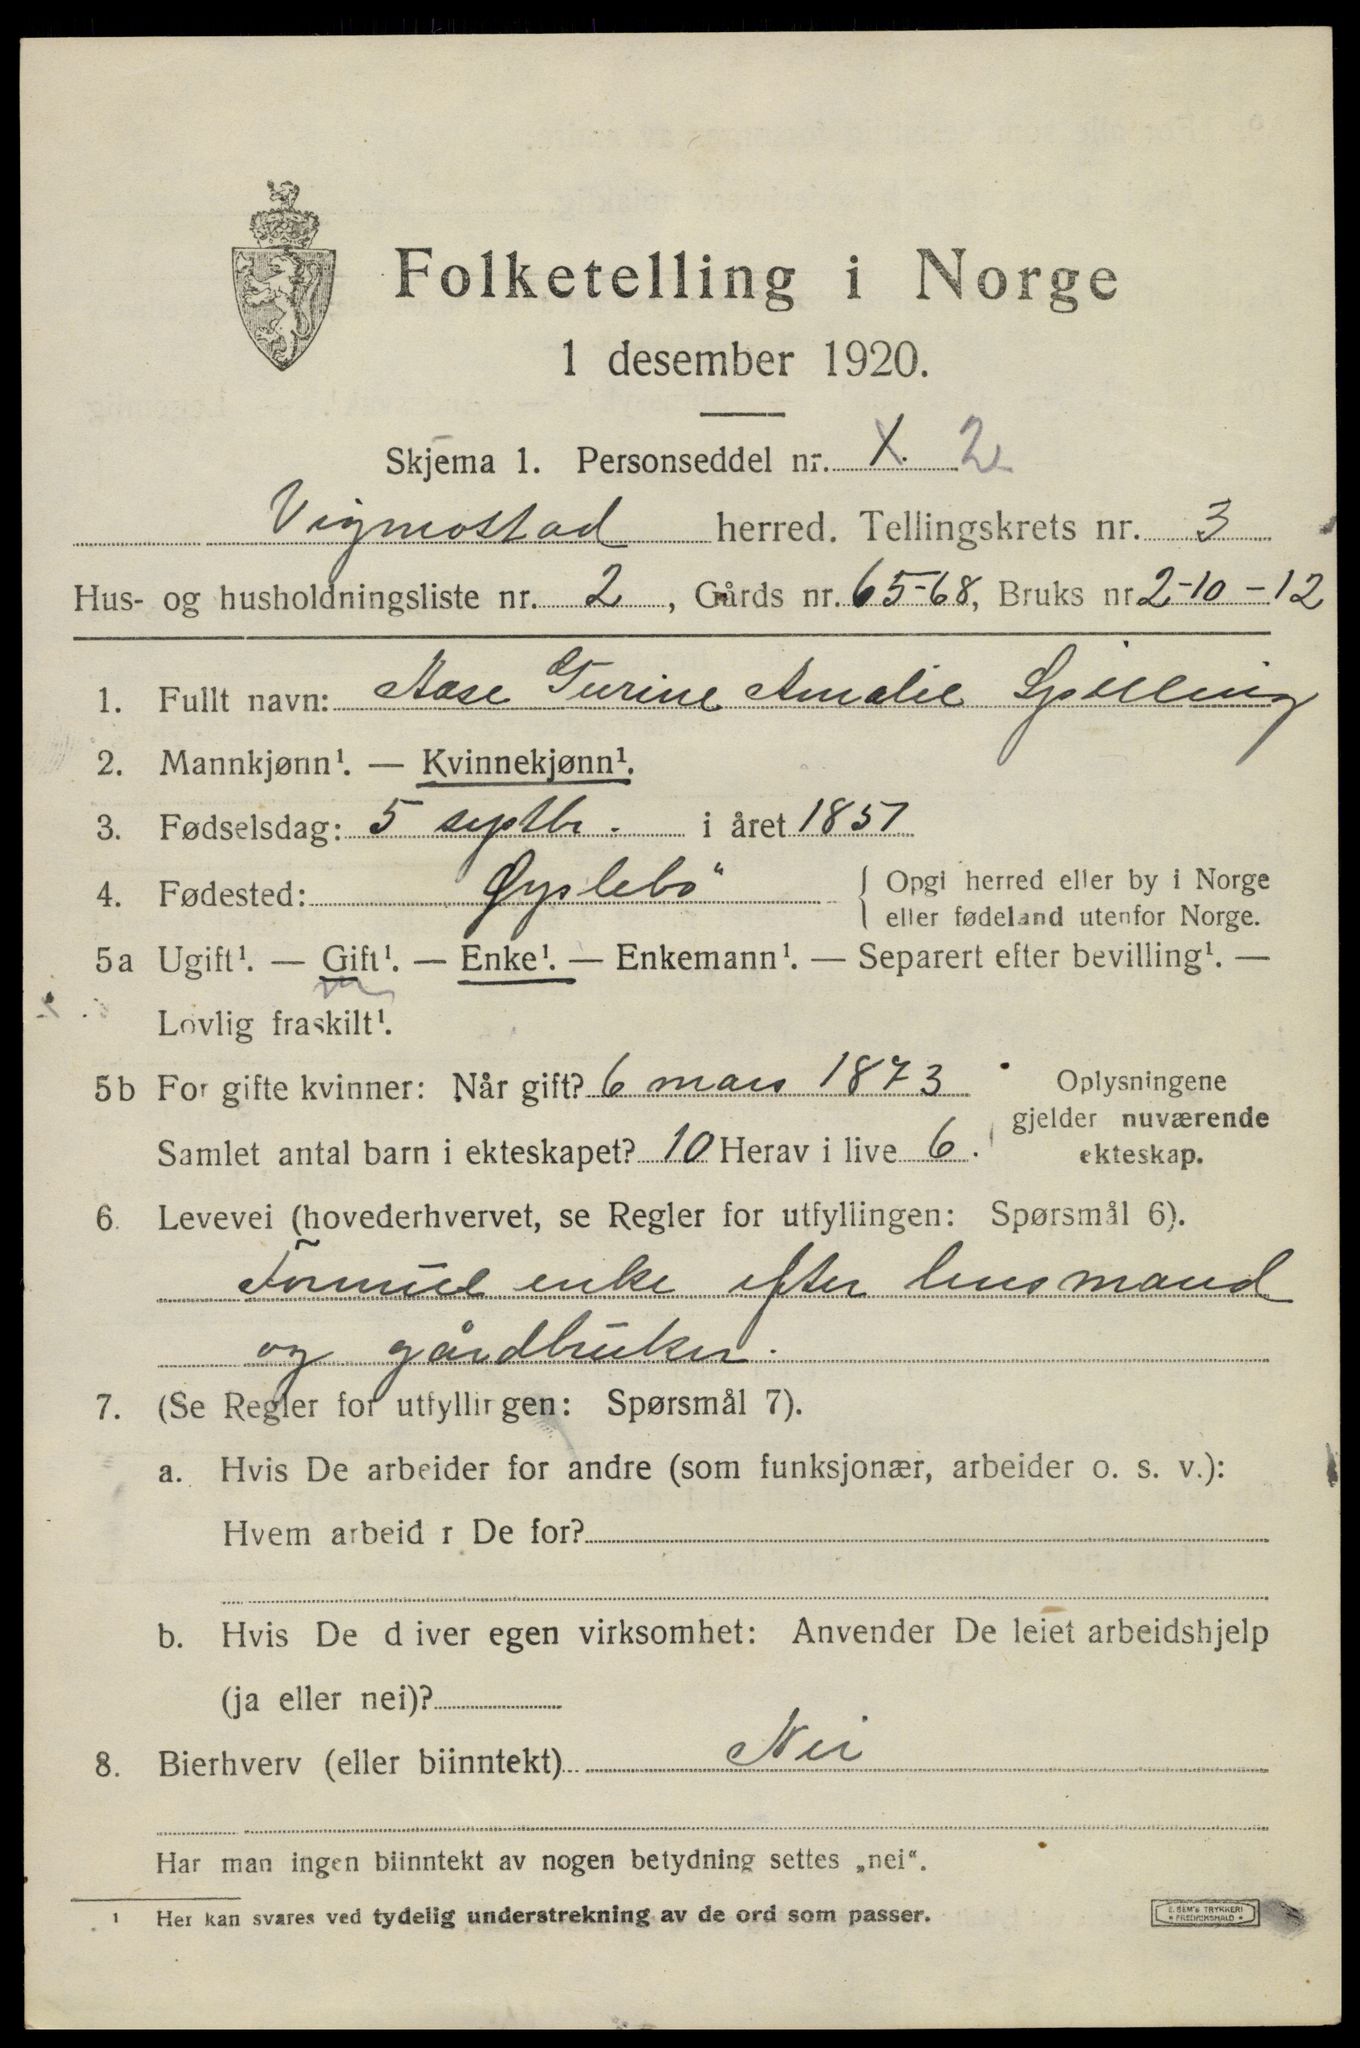 Folketelling i Norge
1 desember 1920.
Skjema 1. Personseddel nr. X. 2
Vigmostad herred. Tellingskrets nr. 3
Hus- og husholdningsliste nr. 2, Gårds nr. 65-68, Bruks nr 2-10-12
1. Fullt navn: Aase Turine Amalie Spilling
2. Mannkjønn¹. — Kvinnekjønn¹.
3. Fødselsdag: 5 septbr. i året 1851
4. Fødested: Øyslebö { Opgi herred eller by i Norge
eller fødeland utenfor Norge.
5a Ugift¹. — Gift¹. — Enke¹. — Enkemann¹. — Separert efter bevilling¹. —
Lovlig fraskilt¹.
5b For gifte kvinner: Når gift? 6 mars 1873 Oplysningene
gjelder nuværende
Samlet antal barn i ekteskapet? 10 Herav i live 6. ekteskap.
6. Levevei (hovederhvervet, se Regler for utfyllingen: Spørsmål 6).
Formue enke efter lensmand
og gårdbruker.
7. (Se Regler for utfyllingen: Spørsmål 7).
a. Hvis De arbeider for andre (som funksjonær, arbeider o. s. v.):
Hvem arbeid r De for?
b. Hvis De d iver egen virksomhet: Anvender De leiet arbeidshjelp
(ja eller nei)?
8. Bierhverv (eller biinntekt) Nei
Har man ingen biinntekt av nogen betydning settes „nei“.
¹ Her kan svares ved tydelig understrekning av de ord som passer.
E. SEM'S TRYKKERI
FREDRIKSHALD